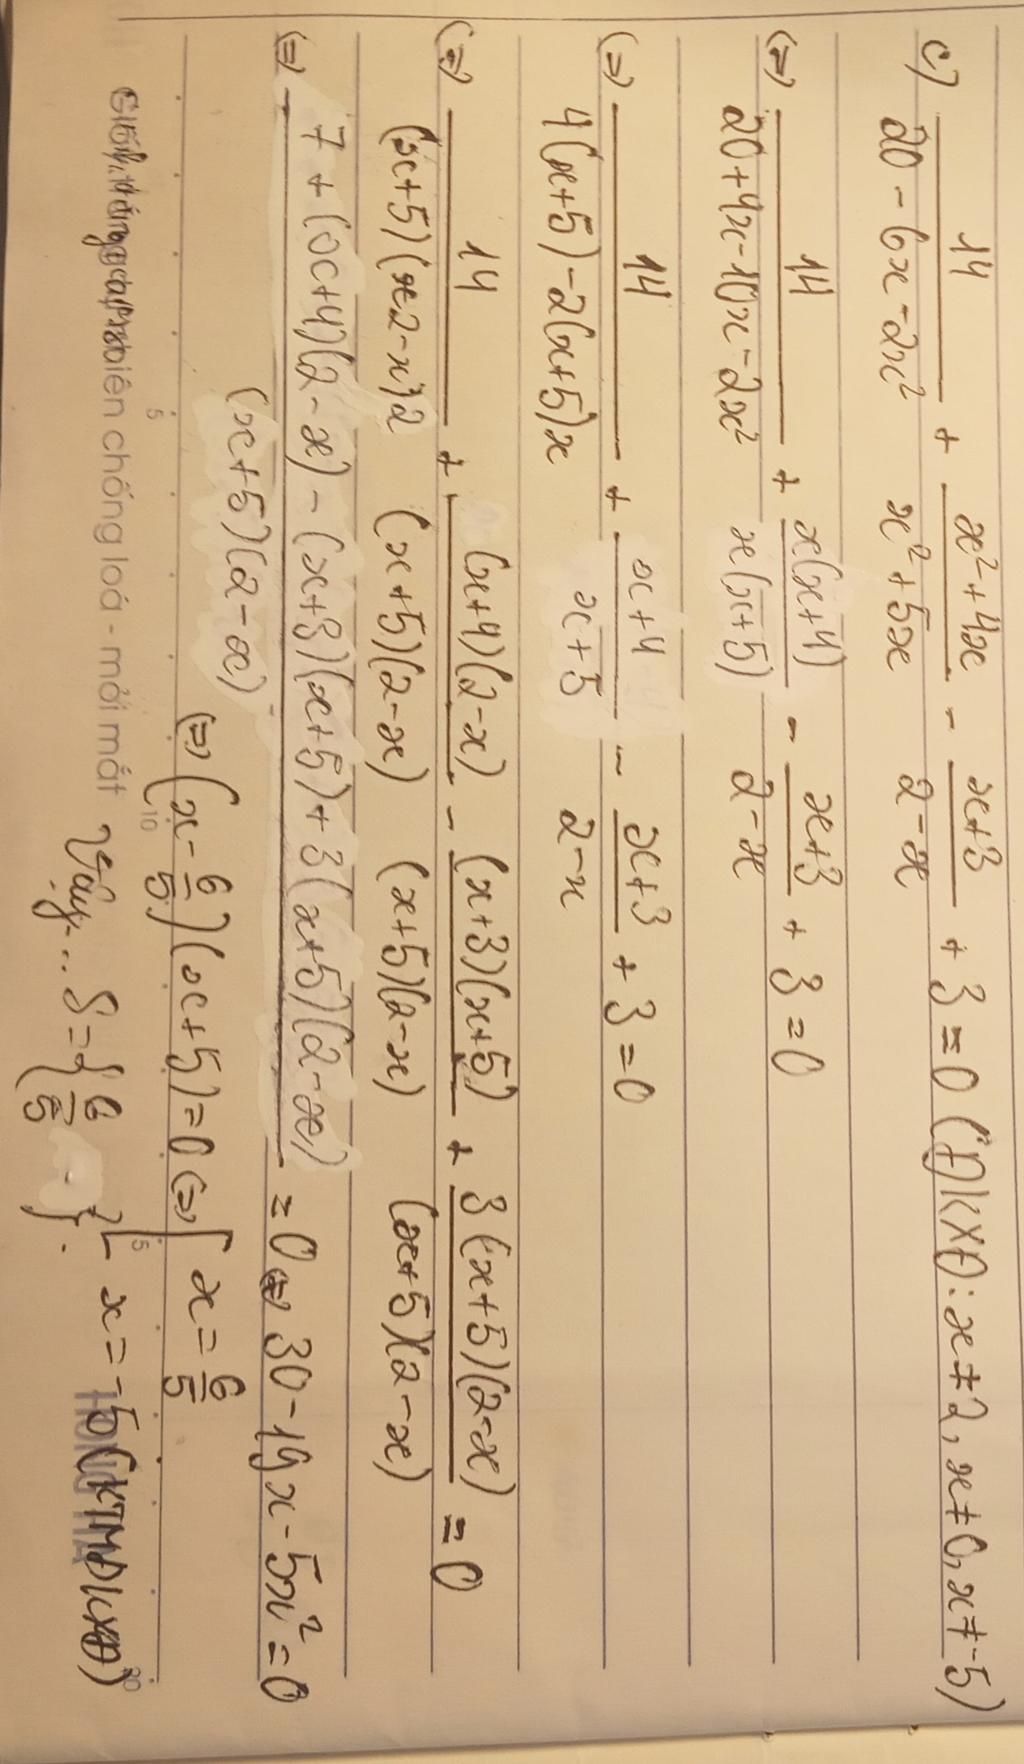 c) 14/(20 - 6x - 2x²) + (x² + 4x)/(x² + 5x) - (x+3)/(2-x) + 3 = 0 (ĐKXĐ: x ≠ 2, x ≠ 0, x ≠ -5)
(=) 14/(20 + 4x - 10x - 2x²) + x(x+4)/x(x+5) - (x+3)/(2-x) + 3 = 0
(=) 14/(4(x+5) - 2(x+5)x) + (x+4)/(x+5) - (x+3)/(2-x) + 3 = 0
(=) 14/(x+5)(2-x)2 + (x+4)(2-x)/(x+5)(2-x) - (x+3)(x+5)/(x+5)(2-x) + 3(x+5)(2-x)/(x+5)(2-x) = 0
(=) 7 + (x+4)(2-x) - (x+3)(x+5) + 3(x+5)(2-x)/(x+5)(2-x) = 0 (=) 30 - 19x - 5x² = 0
(=) (x - 6/5)(x+5) = 0 (=) [ x = 6/5
x = -5 (KTMĐKXĐ)
Vậy... S = {6/5}.
biên chống loá - mỏi mắt
5 10 15 20
HONG HA